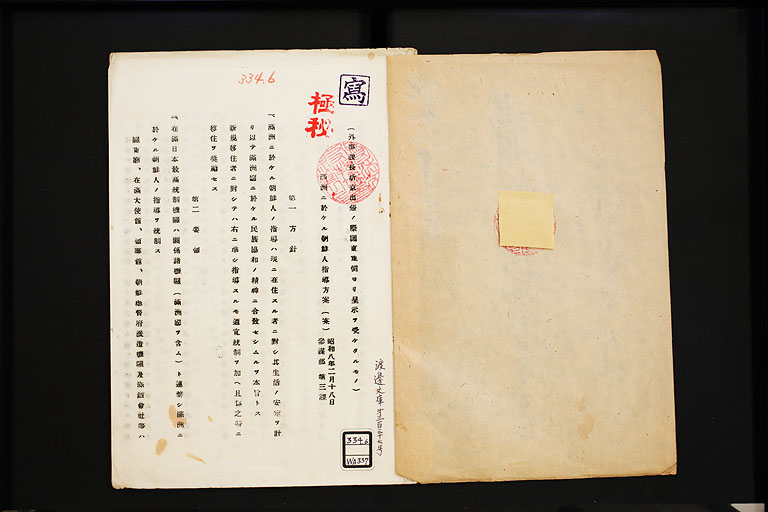 334.6
寫
極秘
(外事課長新京出張ノ際關東軍側ヨリ呈示ヲ受ケタルモノ)
滿洲ニ於ケル朝鮮人指導方案(案)
昭和八年二月十八日
參謀部 第三課
第一 方針
一、滿洲ニ於ケル朝鮮人ノ指導ハ現ニ在住スル者ニ對シ其生活ノ安定ヲ計
リ以テ滿洲國ニ於ケル民族協和ノ精神ニ合致セシムルヲ本旨トス
新規移住者ニ對シテハ右ニ準シ指導スルモ適宜統制ヲ加ヘ且徐之特ニ
移住ヲ奬勵セス
第二 要領
一、在滿日本最高統制機關ハ關係諸機關(滿洲國ヲ含ム)ト連繫シ滿洲ニ
於ケル朝鮮人ノ指導ヲ統制ス
關東廳、在滿大使館、領事館、朝鮮總督府派遣機關及滿鐵會社等ハ
渡邊文庫第三百三十七号
334.6
WA337